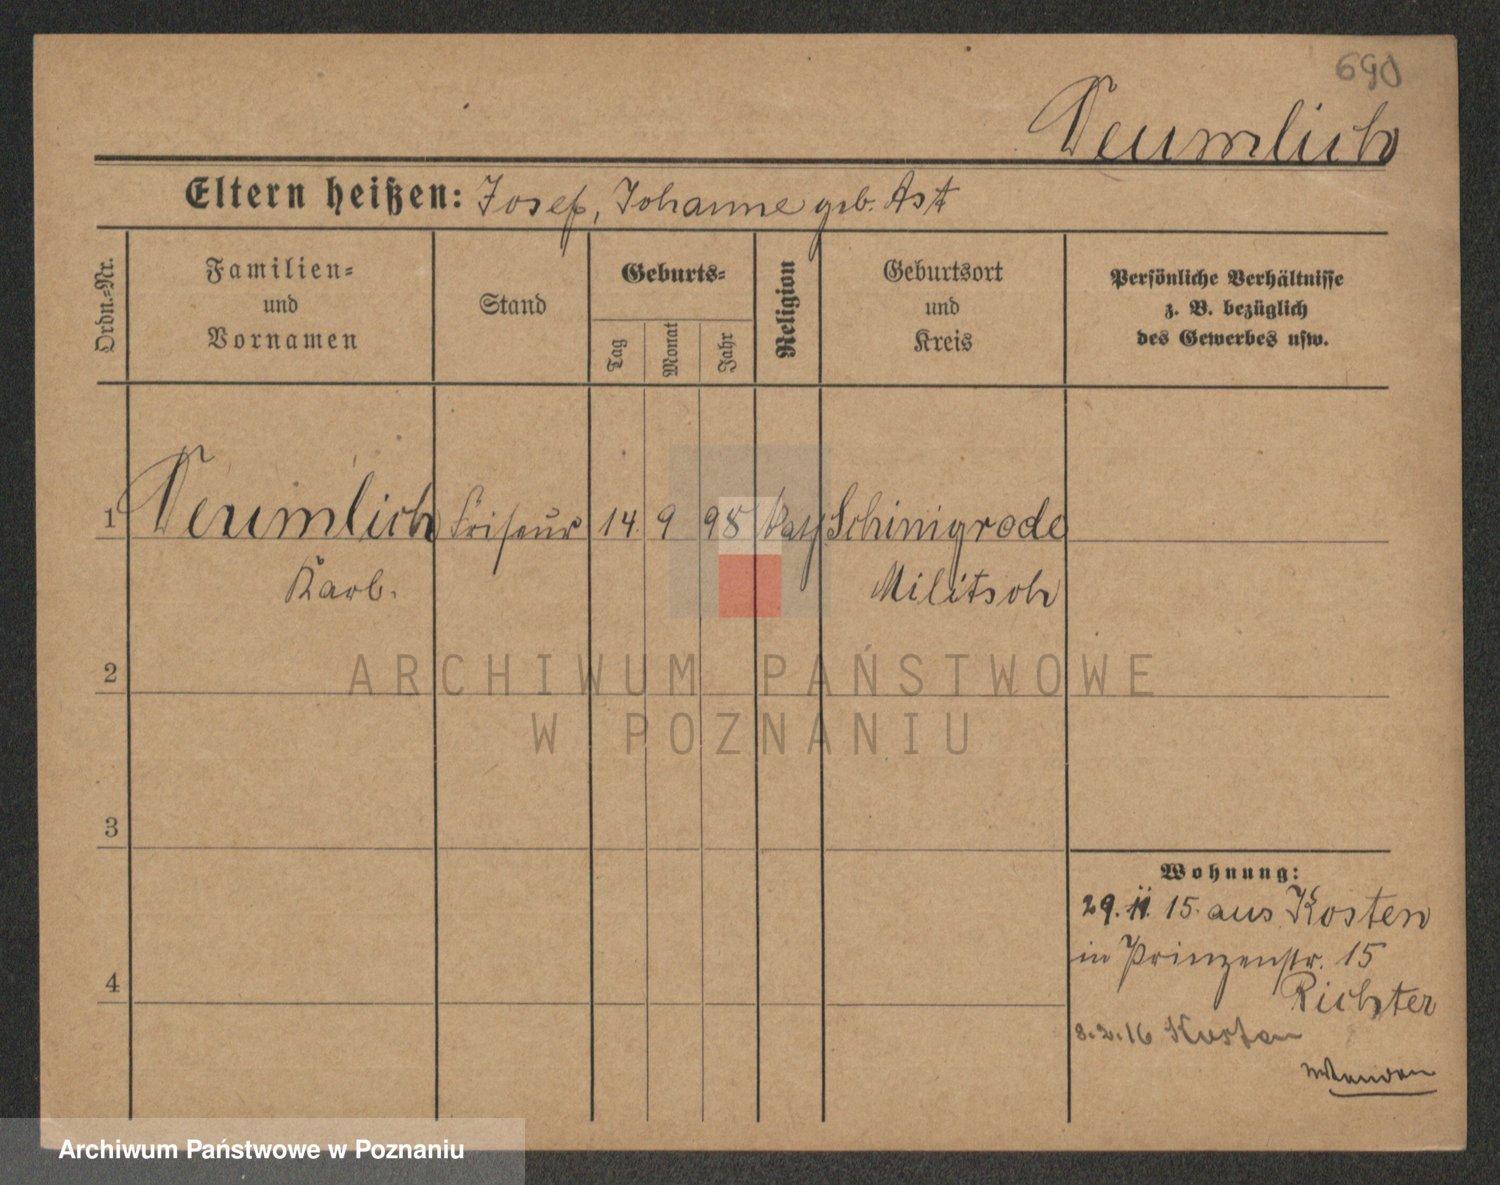 690
Neumlich
Eltern heißen: Josef, Johanne geb. Ast
Ordn.=Nr.
Familien=
und
Vornamen
Stand
Geburts=
Tag
Monat
Jahr
Religion
Geburtsort
und
Kreis
Persönliche Verhältnisse
z. B. bezüglich
des Gewerbes usw.
1 Neumlich Friseur 14. 9 98 Kath Schinigrode
Karl. Militsch
2
ARCHIWUM PAŃSTWOWE
W POZNANIU
3
4
Wohnung:
29. 11. 15. aus Kosten
in Prinzenstr. 15
Richter
8.2.16 Kosten
Archiwum Państwowe w Poznaniu